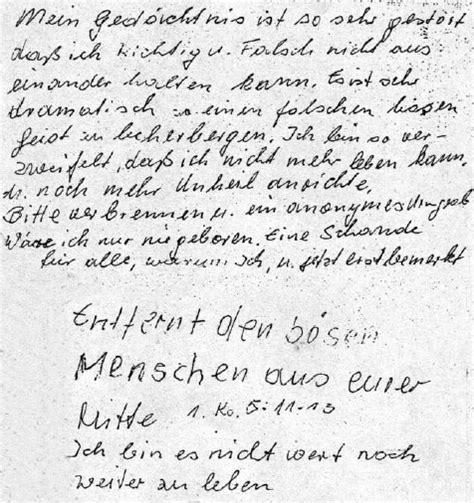 Mein Gedächtnis ist so sehr gestört
daß ich Richtig u. Falsch nicht aus
einander halten kann. Es ist sehr
dramatisch so einen falschen bösen
Geist zu beherbergen. Ich bin so ver-
zweifelt, daß ich nicht mehr leben kann,
u. noch mehr Unheil anrichte.
Bitte verbrennen u. ein anonymes Urngrab
Wäre ich nur nie geboren. Eine Schande
für alle, warum ich, u. jetzt erst bemerkt
Entfernt den bösen
Menschen aus eurer
Mitte 1. Ko. 5:11-13
Ich bin es nicht wert noch
weiter zu leben